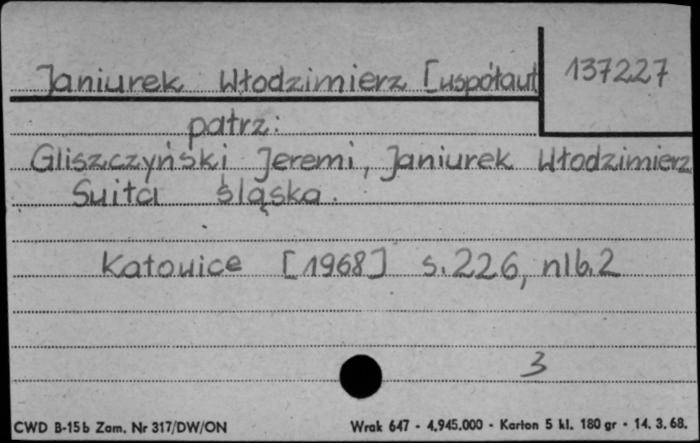 Janiurek Włodzimierz [współaut
137227
patrz:
Gliszczyński Jeremi, Janiurek Włodzimierz
Suita śląska.
Katowice [1968] s.226, nlb.2
3
CWD B-15b Zam. Nr 317/DW/ON
Wrak 647 - 4.945.000 - Karton 5 kl. 180 gr - 14. 3. 68.